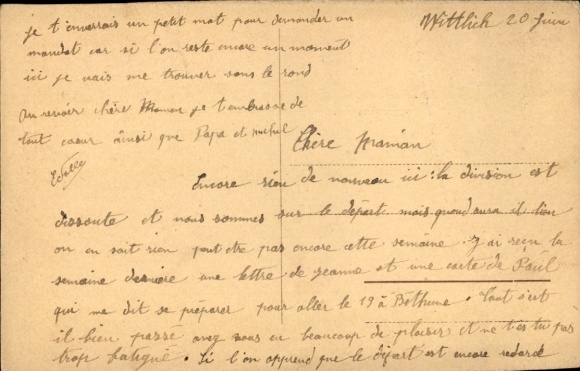 Wittlich 20 Juin
Chère Maman
Encore rien de nouveau ici : la division est
dissoute et nous sommes sur le départ mais quand aura-t-il lieu
on en sait rien peut être pas encore cette semaine. J'ai reçu la
semaine dernière une lettre de Jeanne et une carte de Paul
qui me dit se préparer pour aller le 19 à Béthune. Tout s'est
il bien passé avez vous eu beaucoup de plaisir et ne t'es tu pas
trop fatigué. Si l'on apprend que le départ est encore retardé
je t'enverrais un petit mot pour demander un
mandat car si l'on reste encore un moment
ici je vais me trouver sans le rond
Au revoir chère Maman je t'embrasse de
tout coeur ainsi que Papa et